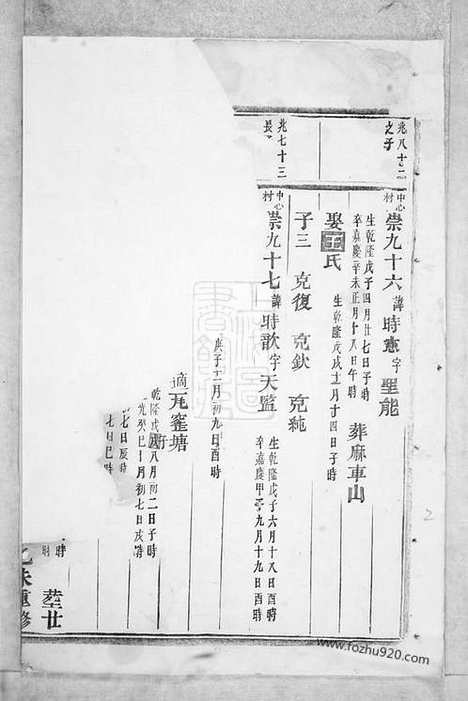 兆八十二
之子
中心村
崇九十六諱時憲字聖能
生乾隆戊子四月廿七日子時
卒嘉慶辛未正月十八日午時
葬麻車山
娶王氏
生乾隆戊戌十二月十四日子時
子三 克復 克欽 克純
兆七十三
長
中心村
崇九十七諱時歆字天監
生乾隆戊子六月十八日酉時
卒嘉慶甲子九月十九日酉時
庚子十二月初九日酉時
適瓦窰塘
乾隆戊
八月初二日子時
光癸巳十月初七日亥時
七日辰時
七日巳時
時
時
乙未重修
www.fozhu920.com